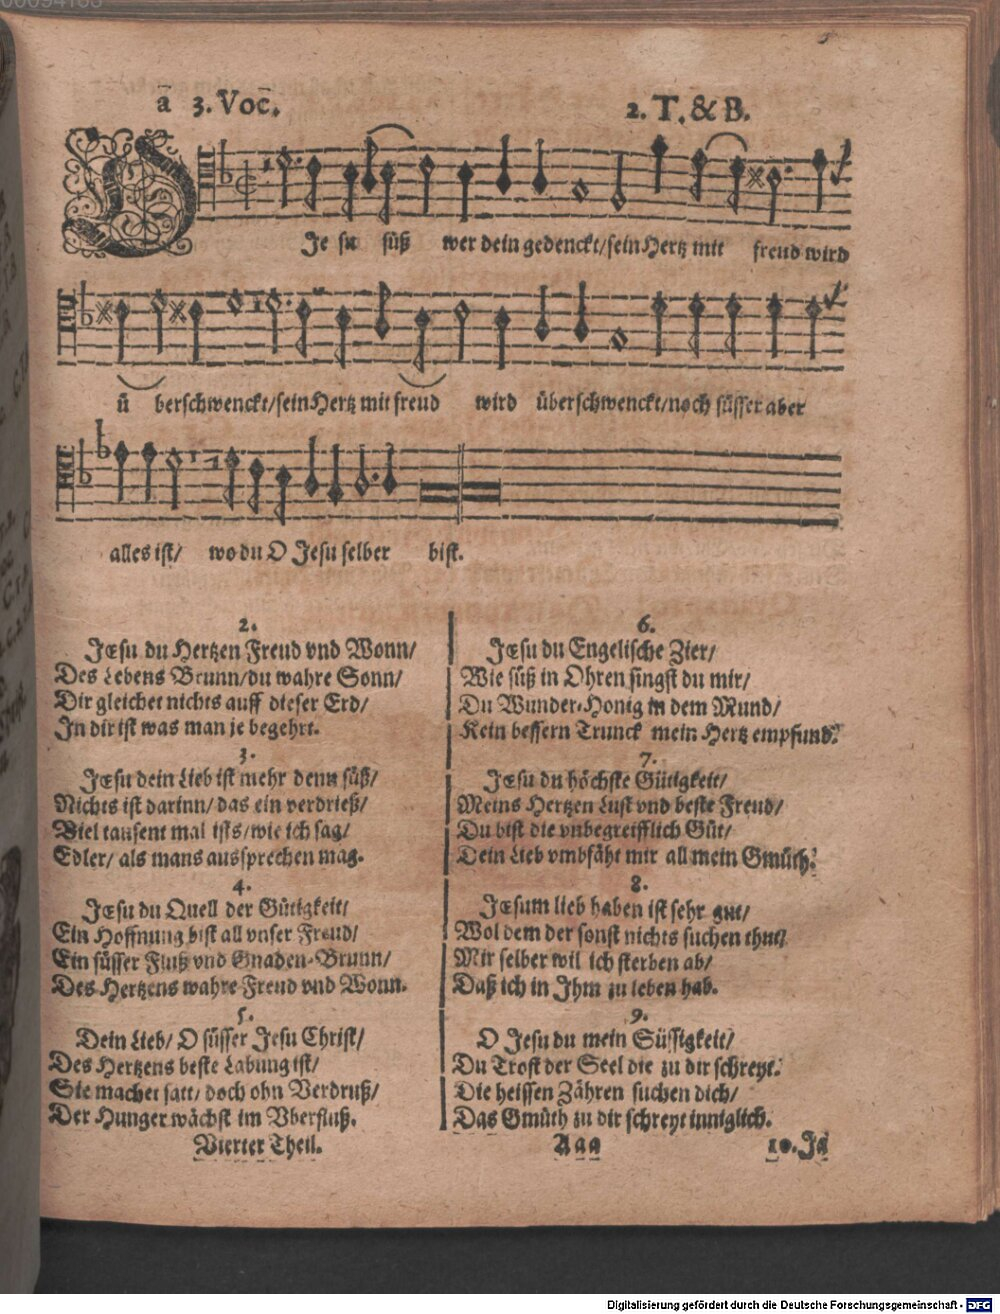 ā 3. Voc̄.
2. T. & B.
O Je su süß wer dein gedenckt/ sein Hertz mit freud wird
ü berschwenckt/ sein Hertz mit freud wird überschwenckt/ noch süsser aber
alles ist/ wo du O Jesu selber bist.
2.
JEsu du Hertzen Freud vnd Wonn/
Des Lebens Brunn/ du wahre Sonn/
Dir gleichet nichts auff dieser Erd/
In dir ist was man je begehrt.
3.
JEsu dein Lieb ist mehr denn süß/
Nichts ist darinn/ das ein verdrieß/
Viel tausent mal ists/ wie ich sag/
Edler/ als mans aussprechen mag.
4.
JEsu du Quell der Gütigkeit/
Ein Hoffnung bist all vnser Freud/
Ein süsser Fluß vnd Gnaden-Brunn/
Des Hertzens wahre Freud vnd Wonn.
5.
Dein Lieb/ O süsser Jesu Christ/
Des Hertzens beste Labung ist/
Sie machet satt/ doch ohn Verdruß/
Der Hunger wächst im Vberfluß.
6.
JEsu du Engelische Zier/
Wie süß in Ohren singst du mir/
Du Wunder-Honig in dem Mund/
Kein bessern Trunck mein Hertz empfund.
7.
JEsu du höchste Gütigkeit/
Meins Hertzen Lust vnd beste Freud/
Du bist die vnbegreifflich Güt/
Dein Lieb vmbfäht mir all mein Gmüth.
8.
JEsum lieb haben ist sehr gut/
Wol dem der sonst nichts suchen thut/
Mir selber wil ich sterben ab/
Daß ich in Ihm zu leben hab.
9.
O Jesu du mein Süssigkeit/
Du Trost der Seel die zu dir schreyt.
Die heissen Zähren suchen dich/
Das Gmüth zu dir schreyt inniglich.
Vierter Theil.
Aaa
10. Ja
Digitalisierung gefördert durch die Deutsche Forschungsgemeinschaft - DFG